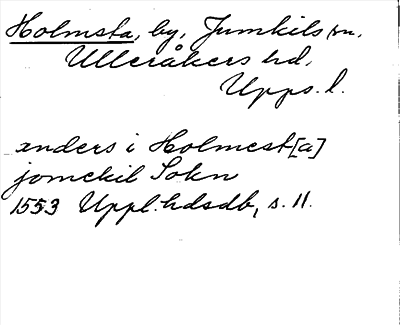 Holmsta, by, Jumkils sn.
Ulleråkers hd,
Upps. l.
anders i Holmest[a]
jomekil Sokn
1553 Uppl.hdsdb, s. 11.